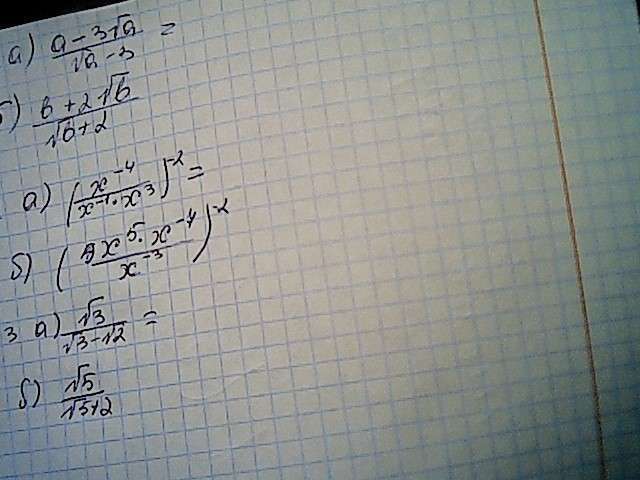 а) (a - 3√a)/(√a - 3) =
б) (b + 2√b)/(√b + 2)
а) (x^-4/(x^-1 · x^3))^-2 =
б) (x^5 · x^-4/x^-3)^-2
3 а) √3/(√3 - √2) =
б) √5/(√3+2)